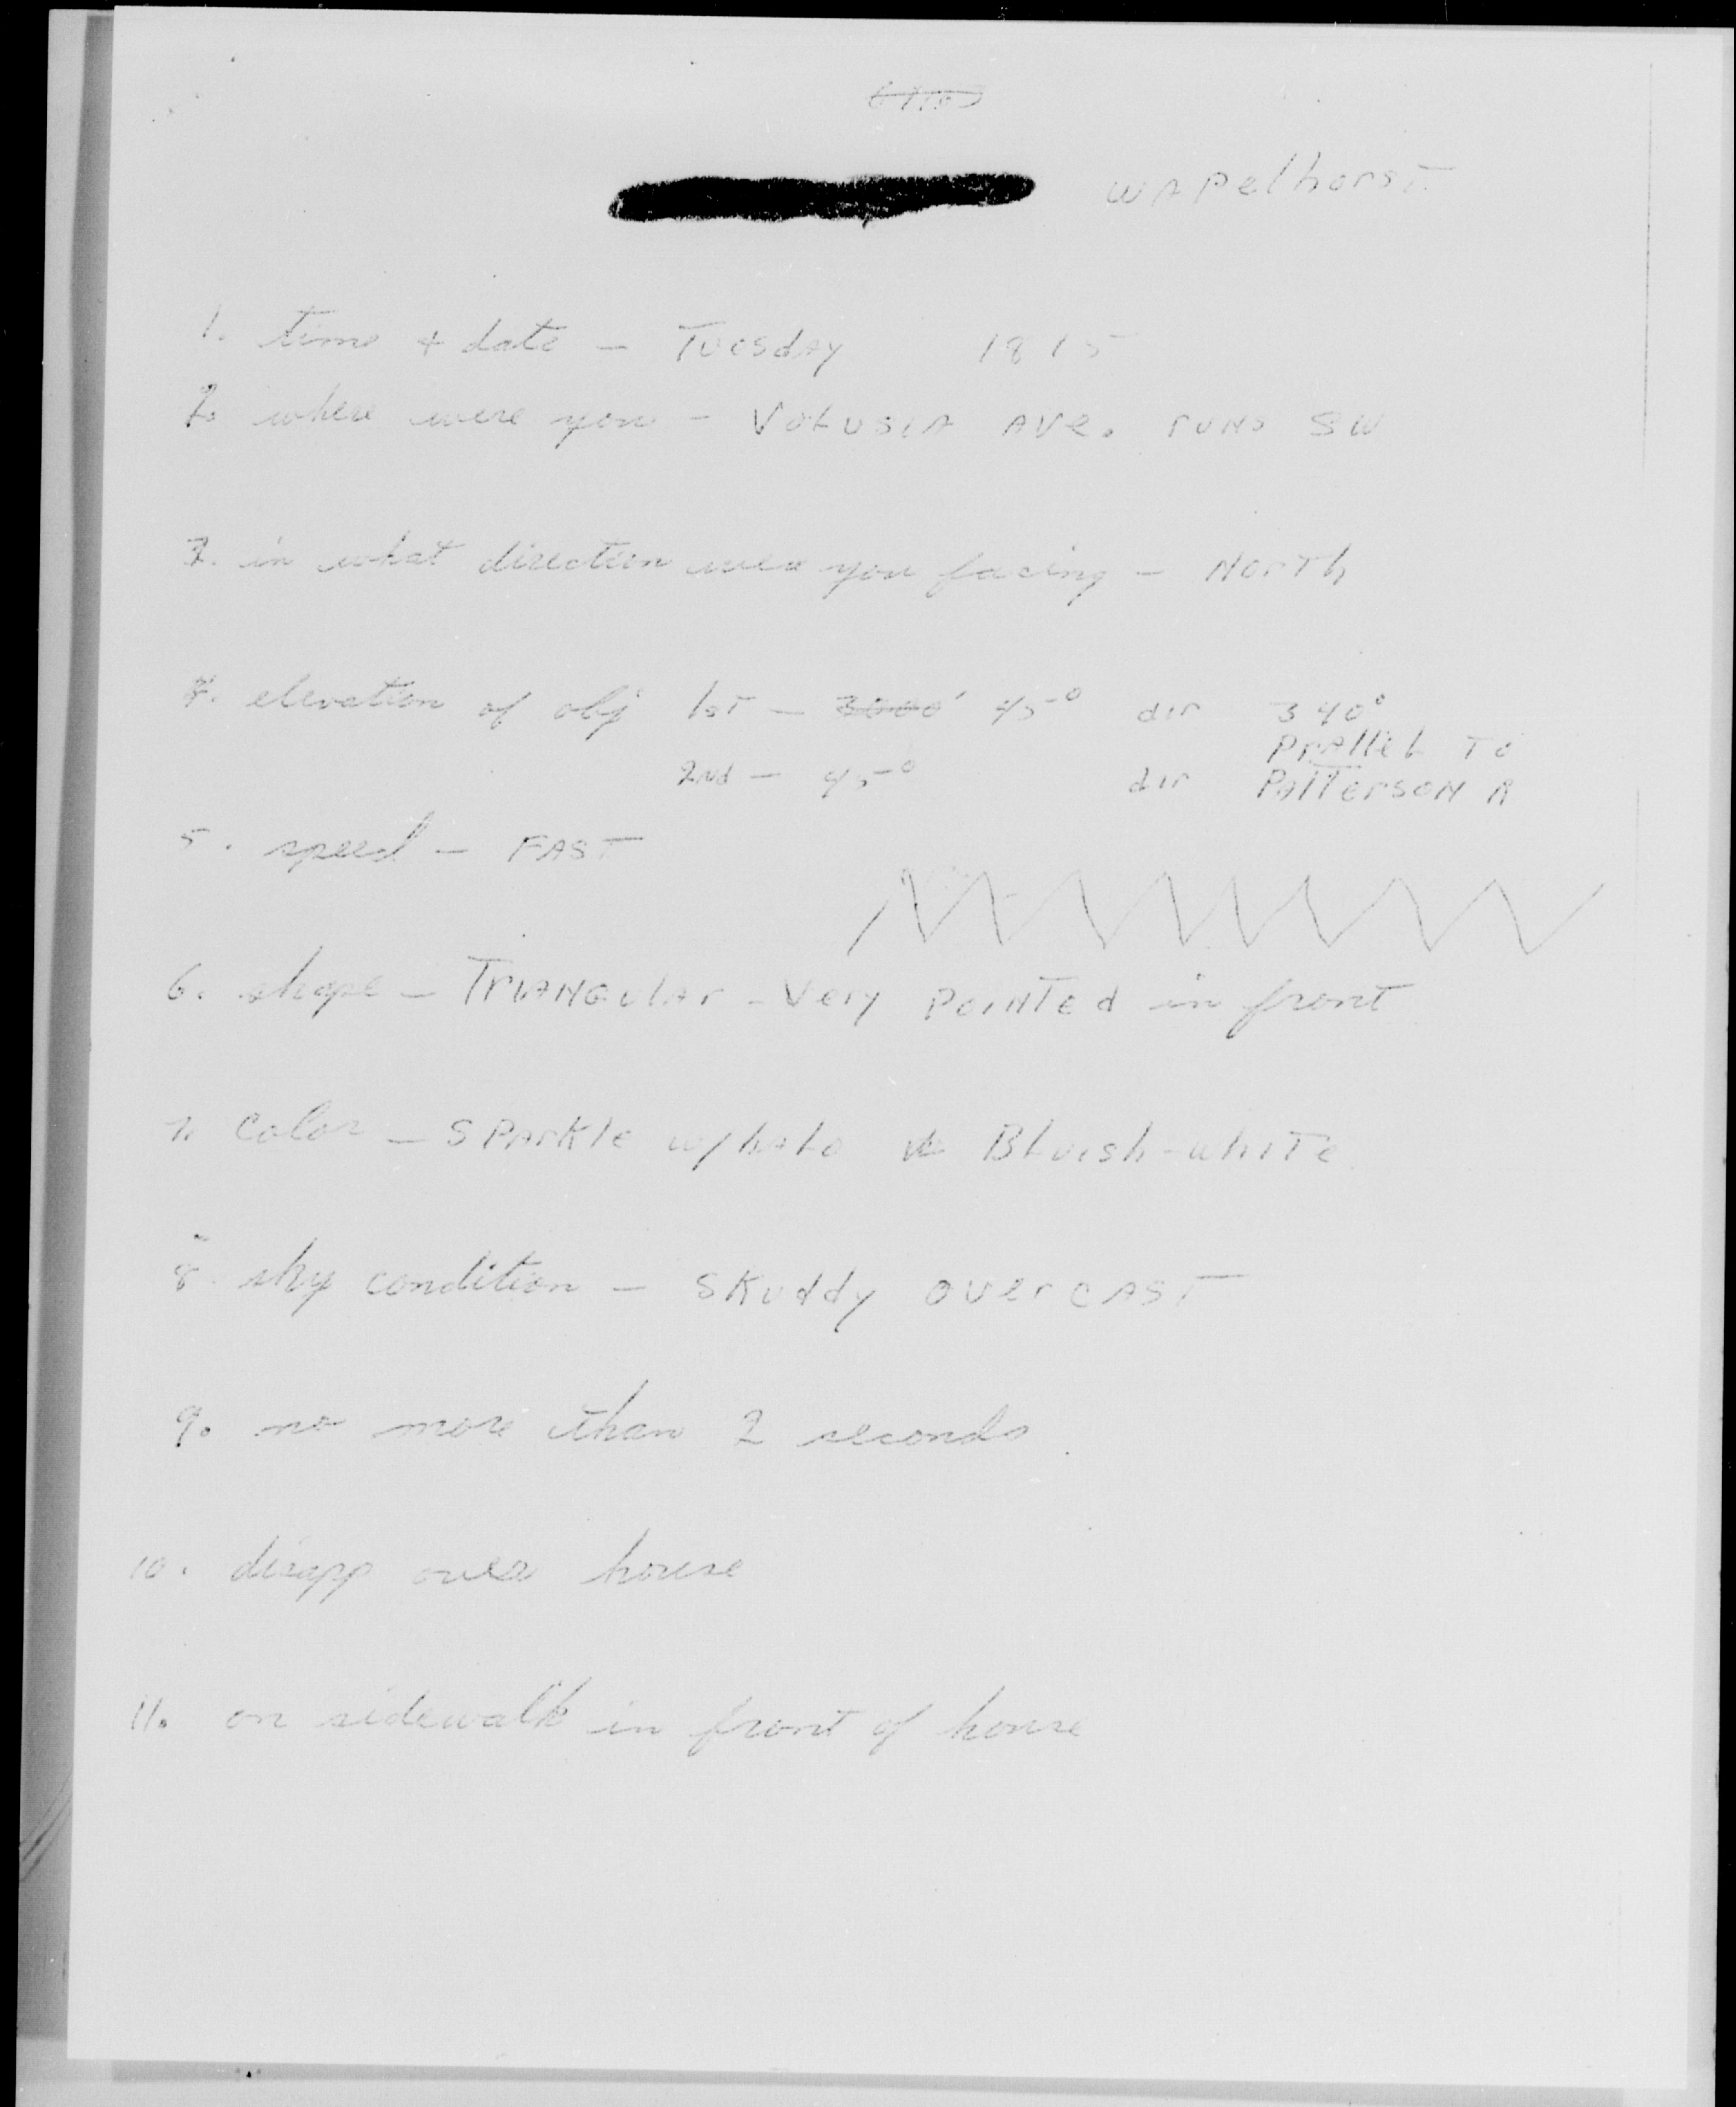 WAPelhorsT
1. time + date - Tuesday 1815
2. where were you - VOLUSIA AVE. runs SW
3. in what direction were you facing - NorTh
4. elevation of obj 1sT - 3000' 45° dir 340°
PrAllel To
2nd - 45° dir PATTERSON R
5. speed - FAST
6. shape - TriANGulAr - Very PoiNTed in front
7. Color - SPArkle w/hALo Bluish-whiTe
8. sky condition - SKuddy overcAST
9. no more than 2 seconds
10. disapp over house
11. on sidewalk in front of house